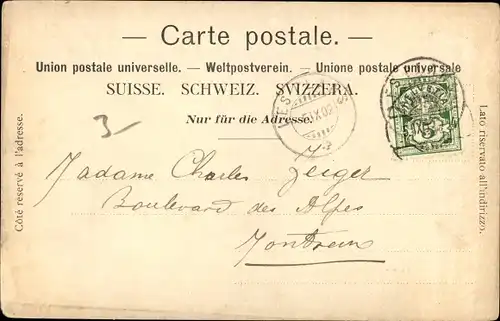 — Carte postale. —
Union postale universelle. — Weltpostverein. — Unione postale universale
SUISSE. SCHWEIZ. SVIZZERA.
Nur für die Adresse.
3
Madame Charles Zeiger
Boulevard des Alpes
Montreux
Côté réservé à l'adresse.
Lato riservato all'indirizzo.
HELVETIA
5